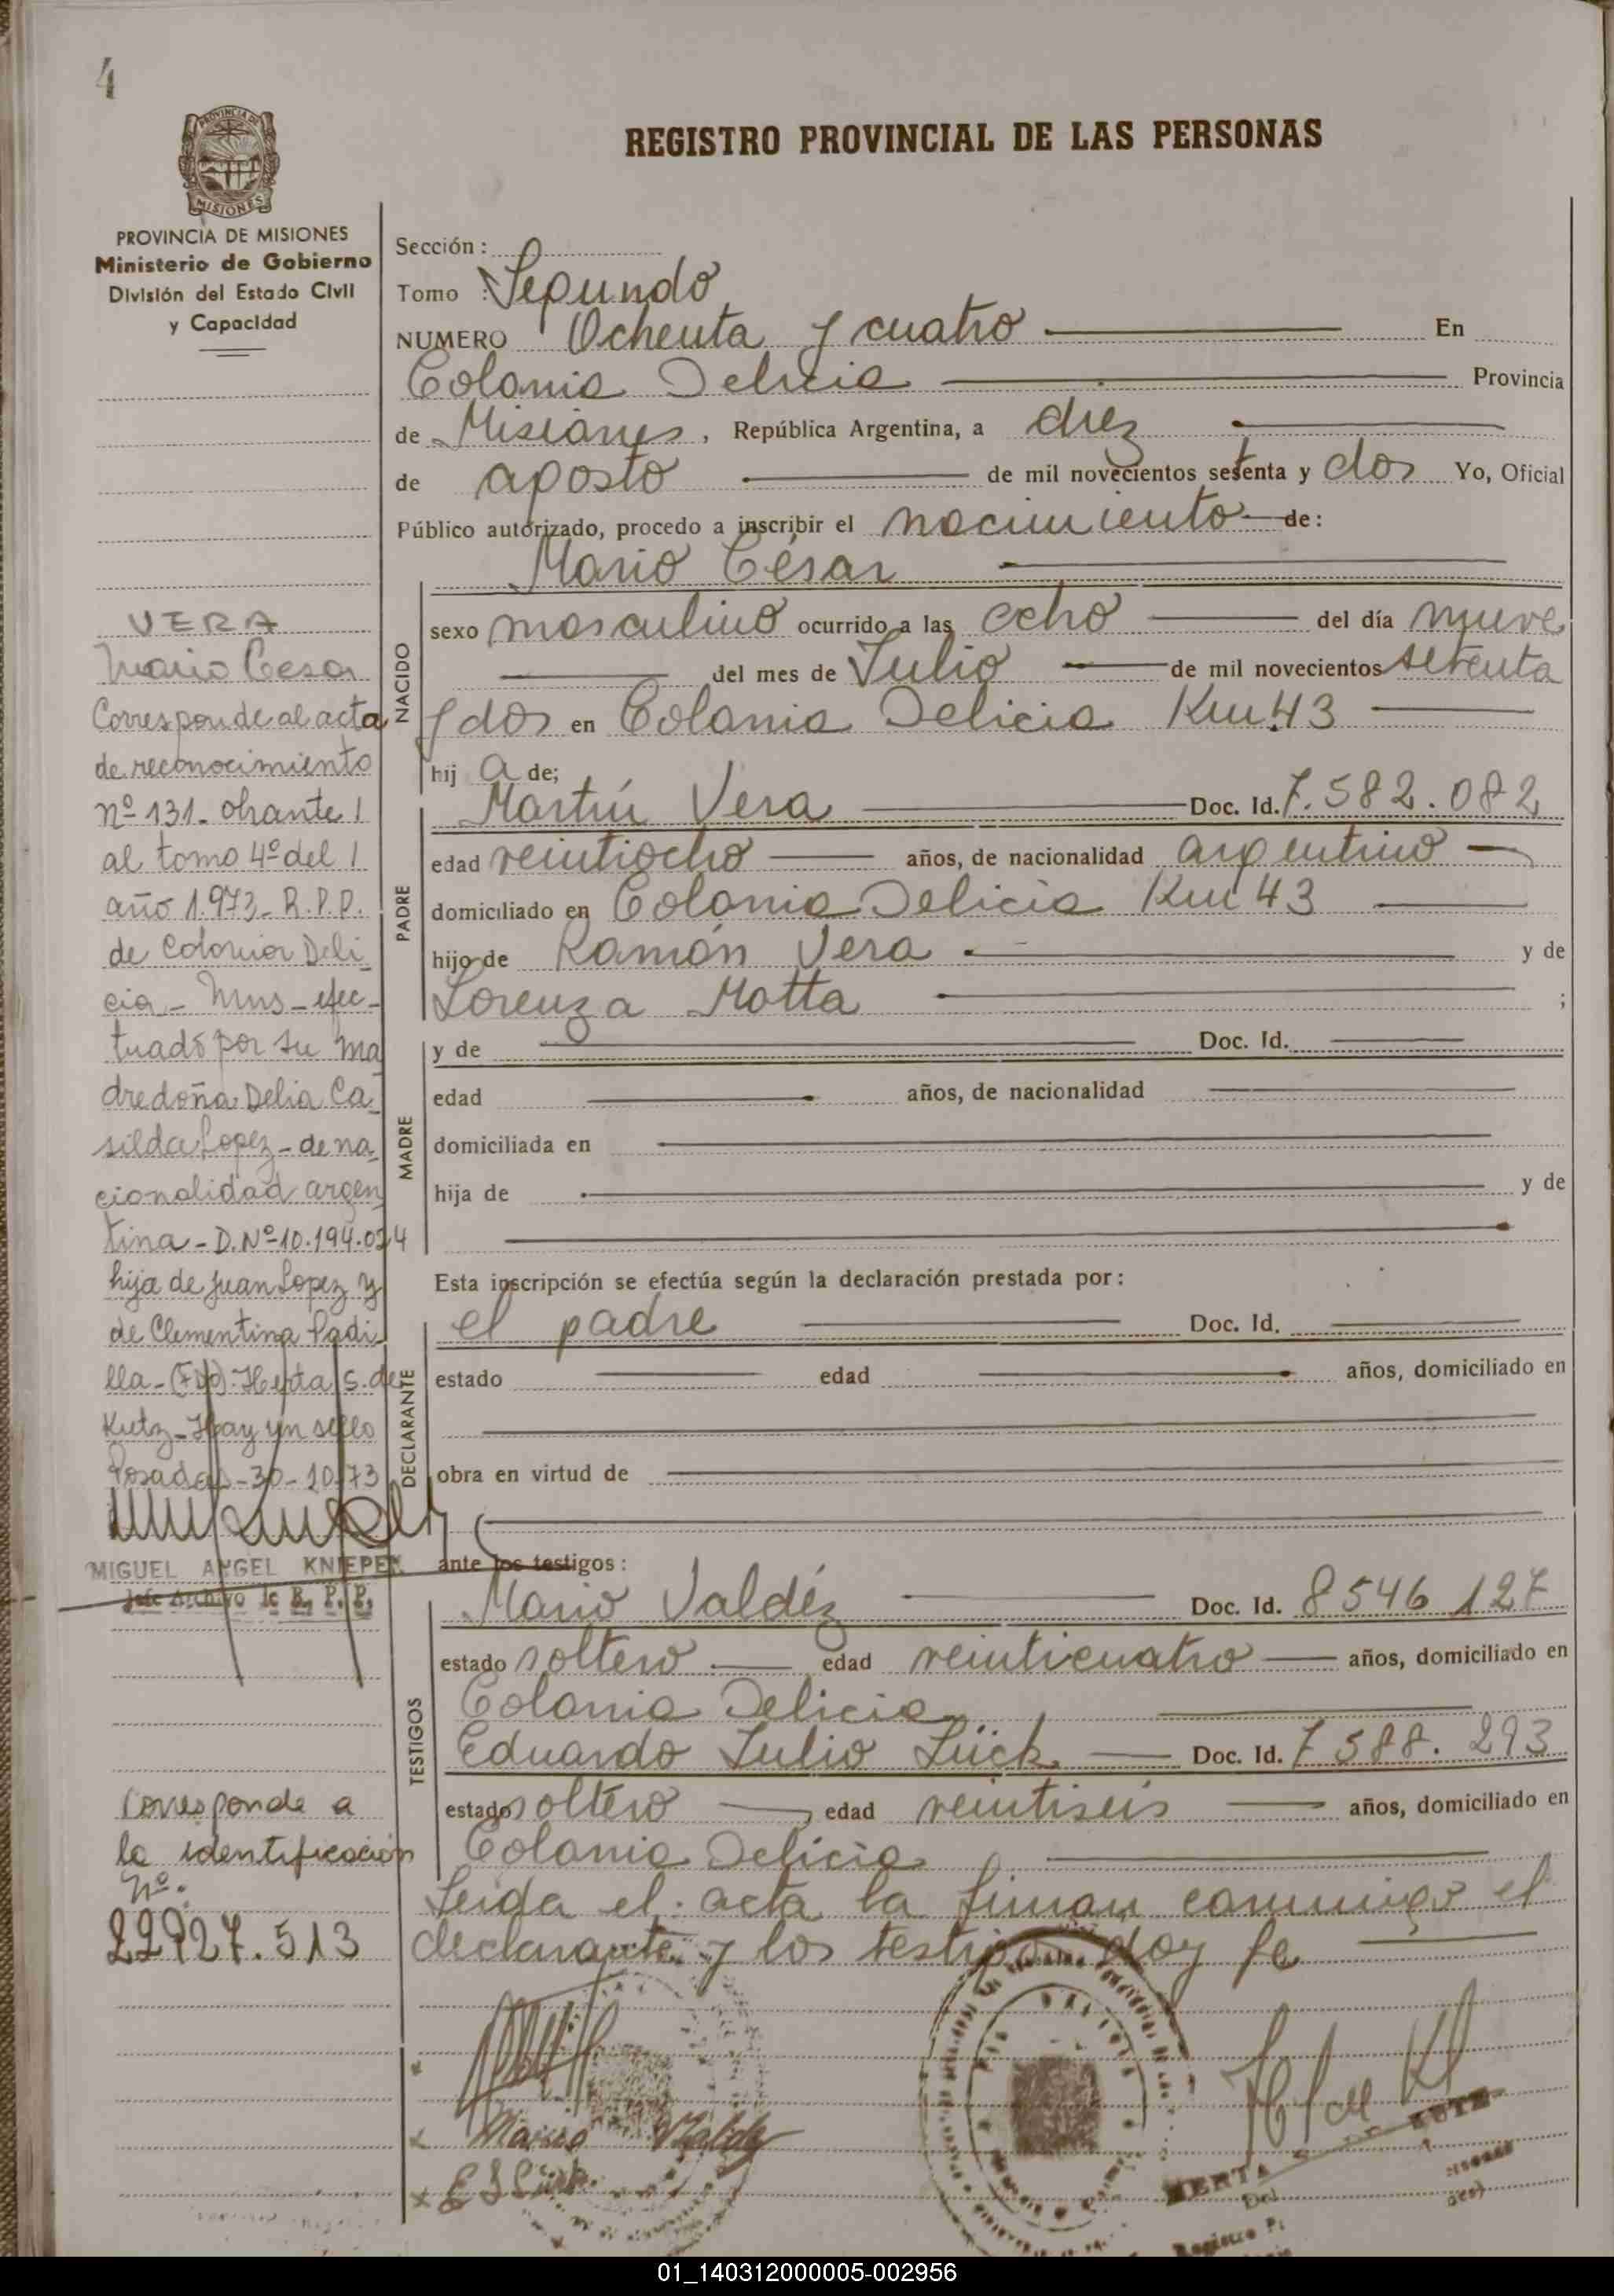 4
PROVINCIA DE
MISIONES
PROVINCIA DE MISIONES
Ministerio de Gobierno
División del Estado Civil
y Capacidad
VERA
Mario Cesar
Corresponde al acta
de reconocimiento
nº 131- obrante
al tomo 4º del
año 1.973- R.P.P.
de Colonia Deli
cia- Mns- efec-
tuado por su ma
dre doña Delia Ca-
silda Lopez- de na
cionalidad argen
tina- D.Nº 10.194.024
hija de Juan Lopez y
de Clementina Padi-
lla-(Fdo)- Herta S. de
Kutz- Hay un sello
Posadas-30-10-73
MIGUEL ANGEL KNIEPER
Jefe Archivo R. P. P.
Corresponde a
la identificación
nº.
22927.513
REGISTRO PROVINCIAL DE LAS PERSONAS
Sección :
Tomo : Segundo
NUMERO Ochenta y cuatro En
Colonia Delicia Provincia
de Misiones, República Argentina, a diez
de agosto de mil novecientos setenta y dos Yo, Oficial
Público autorizado, procedo a inscribir el nacimiento de:
Mario César
NACIDO
sexo masculino ocurrido a las ocho del día nueve
del mes de Julio de mil novecientos setenta
y dos en Colonia Delicia Km 43
hij o de;
PADRE
Martín Vera Doc. Id. 7.582.082
edad veintiocho años, de nacionalidad argentino
domiciliado en Colonia Delicia Km 43
hijo de Ramón Vera y de
Lorenza Motta ;
MADRE
y de Doc. Id.
edad años, de nacionalidad
domiciliada en
hija de y de
Esta inscripción se efectúa según la declaración prestada por :
DECLARANTE
el padre Doc. Id.
estado edad años, domiciliado en
obra en virtud de
ante los testigos :
TESTIGOS
Mario Valdéz Doc. Id. 8546 127
estado soltero edad veinticuatro años, domiciliado en
Colonia Delicia
Eduardo Julio Lück Doc. Id. 7 588. 293
estado soltero edad veintiseis años, domiciliado en
Colonia Delicia
Leída el acta la firman conmigo el
declarante y los testigos doy fe
Mario Valdez
E J Lück
HERTA S. DE KUTZ
01_140312000005-002956